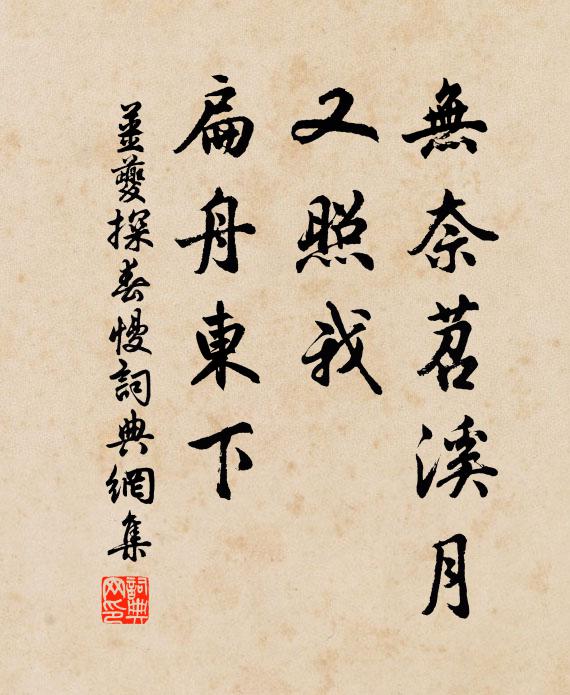 無奈苕溪月
又照我
扁舟東下
姜夔探春慢詞典網集
詞典網印